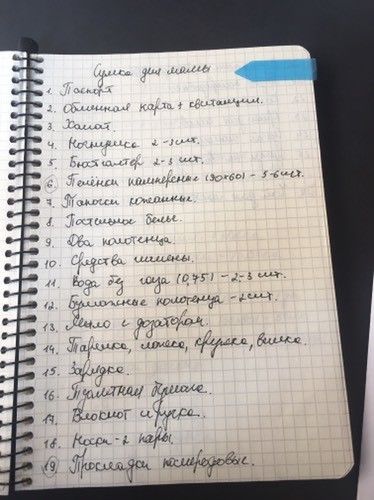 Сумка для мамы
1. Паспорт
2. Обменная карта + квитанции.
3. Халат.
4. Ночнушка 2-3 шт.
5. Бюстгалтер 2-3 шт.
6. Пелёнки памперсные (90х60) - 5-6 шт.
7. Тапочки кожанные.
8. Постельное белье.
9. Два полотенца.
10. Средства гигиены.
11. Вода без газа (0,75) - 2-3 шт.
12. Бумажные полотенца - 2 шт.
13. Мыло с дозатором.
14. Тарелка, ложка, кружка, вилка.
15. Зарядка.
16. Туалетная бумага.
17. Блокнот и ручка.
18. Носки - 2 пары.
19. Прокладки послеродовые.